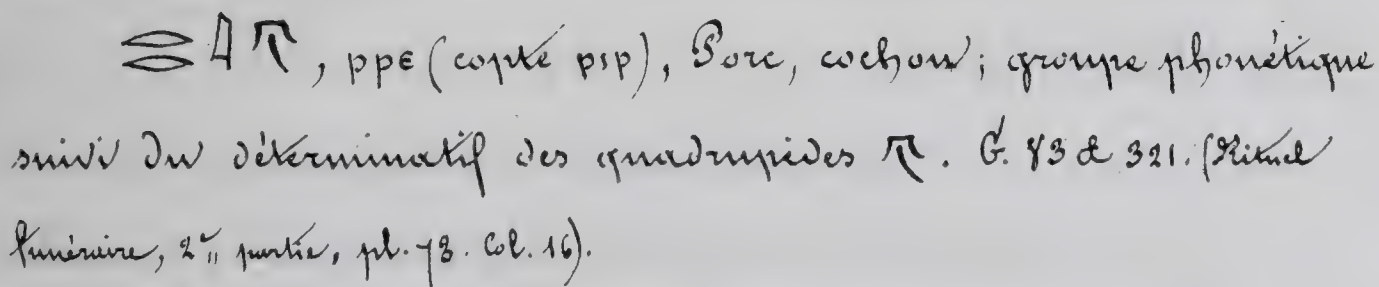 𓂋𓂋𓇋𓄛, ⲣⲣⲉ (copte ⲣⲓⲣ), Porc, cochon; groupe phonétique
suivi du déterminatif des quadrupèdes 𓄛. G. 83 & 321. (Rituel
funéraire, 2e partie, pl. 73. Col. 16).